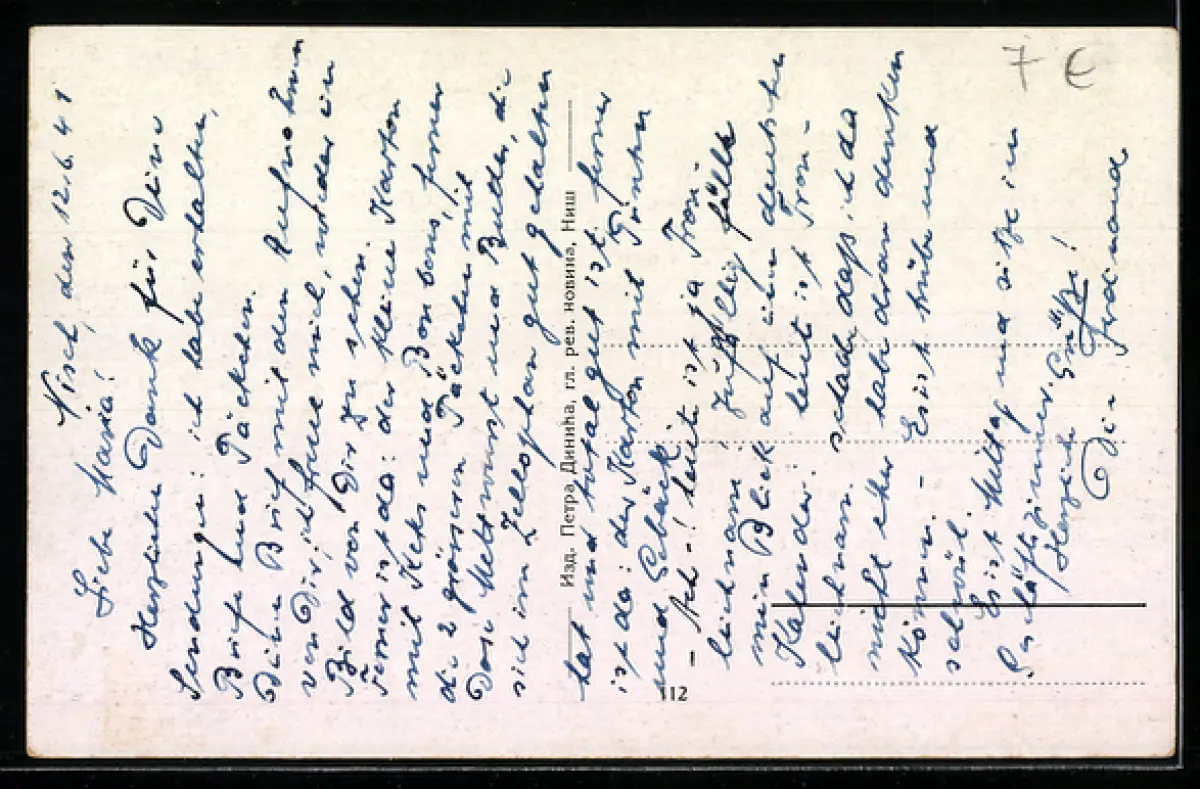 Nisch, den 12.6.41
Liebe Maria!
Herzlichen Dank für Deine
Sendungen: ich habe erhalten,
Briefe und Päckchen.
Deine Brief mit den Aufnahmen
von Dir; ich freue mich, wieder ein
Bild von Dir zu sehen.
Ferner ist da: der kleine Karton
mit Keks und Bonbons, ferner
die 2 grössern Päckchen mit
Dose Mettwurst und Butter, die
sich im Zellophan gut gehalten
hat und total gut ist. ferner
ist da: der Karton mit
und Gebäck.
- Ach -! heute ist ja Fron-
leichnam! Zufällig fällt
mein Blick auf einen deutschen
Kalender: heute ist Fron-
leichnam. schade, dass ich da
nicht eher habe dran denken
können. - Es ist trübe und
schwül.
Es ist Mittag und sitze im
Geschäftszimmer.
Herzliche Grüße!
Dein Ferdinand
Изд. Петра Динића, гл. рев. новина, Ниш
112
7 €